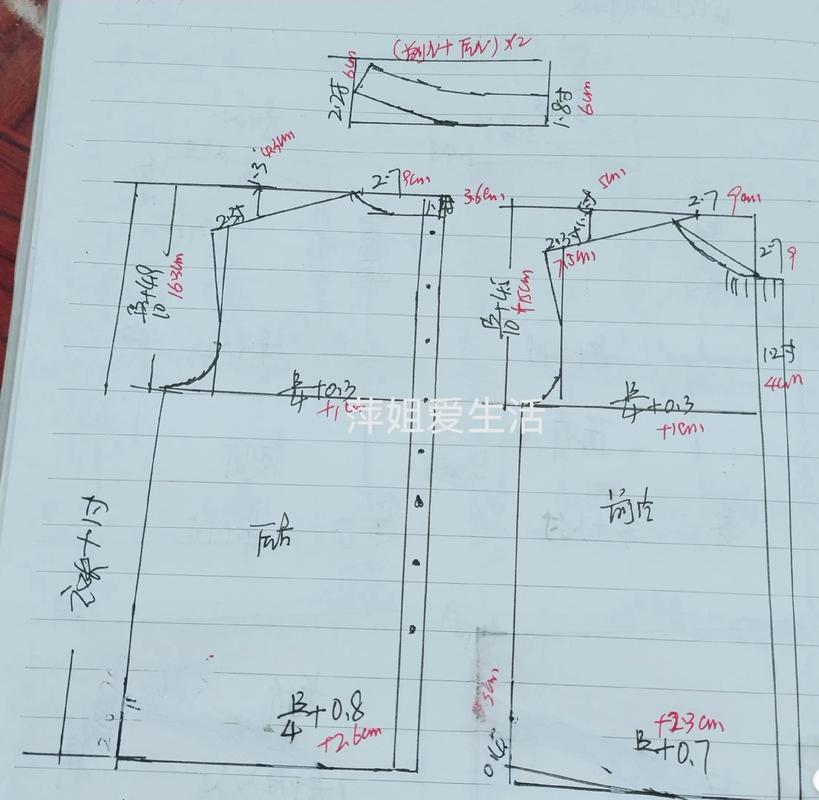 (前N+后N)×2
6cm
2.2寸
1.8寸
6cm
1.3
4.3cm
2.7
9cm
3.6cm
2.2寸
B/10+4.9
16.3cm
B/4+0.3
+1cm
衣长+1寸
后片
B/4+0.8
+2.6cm
5cm
2.7
9cm
2.3寸
7.5cm
2.7
9
B/10+4.5
+15cm
1.2寸
4cm
B/4+0.3
+1cm
前片
+2.3cm
B+0.7
萍姐爱生活